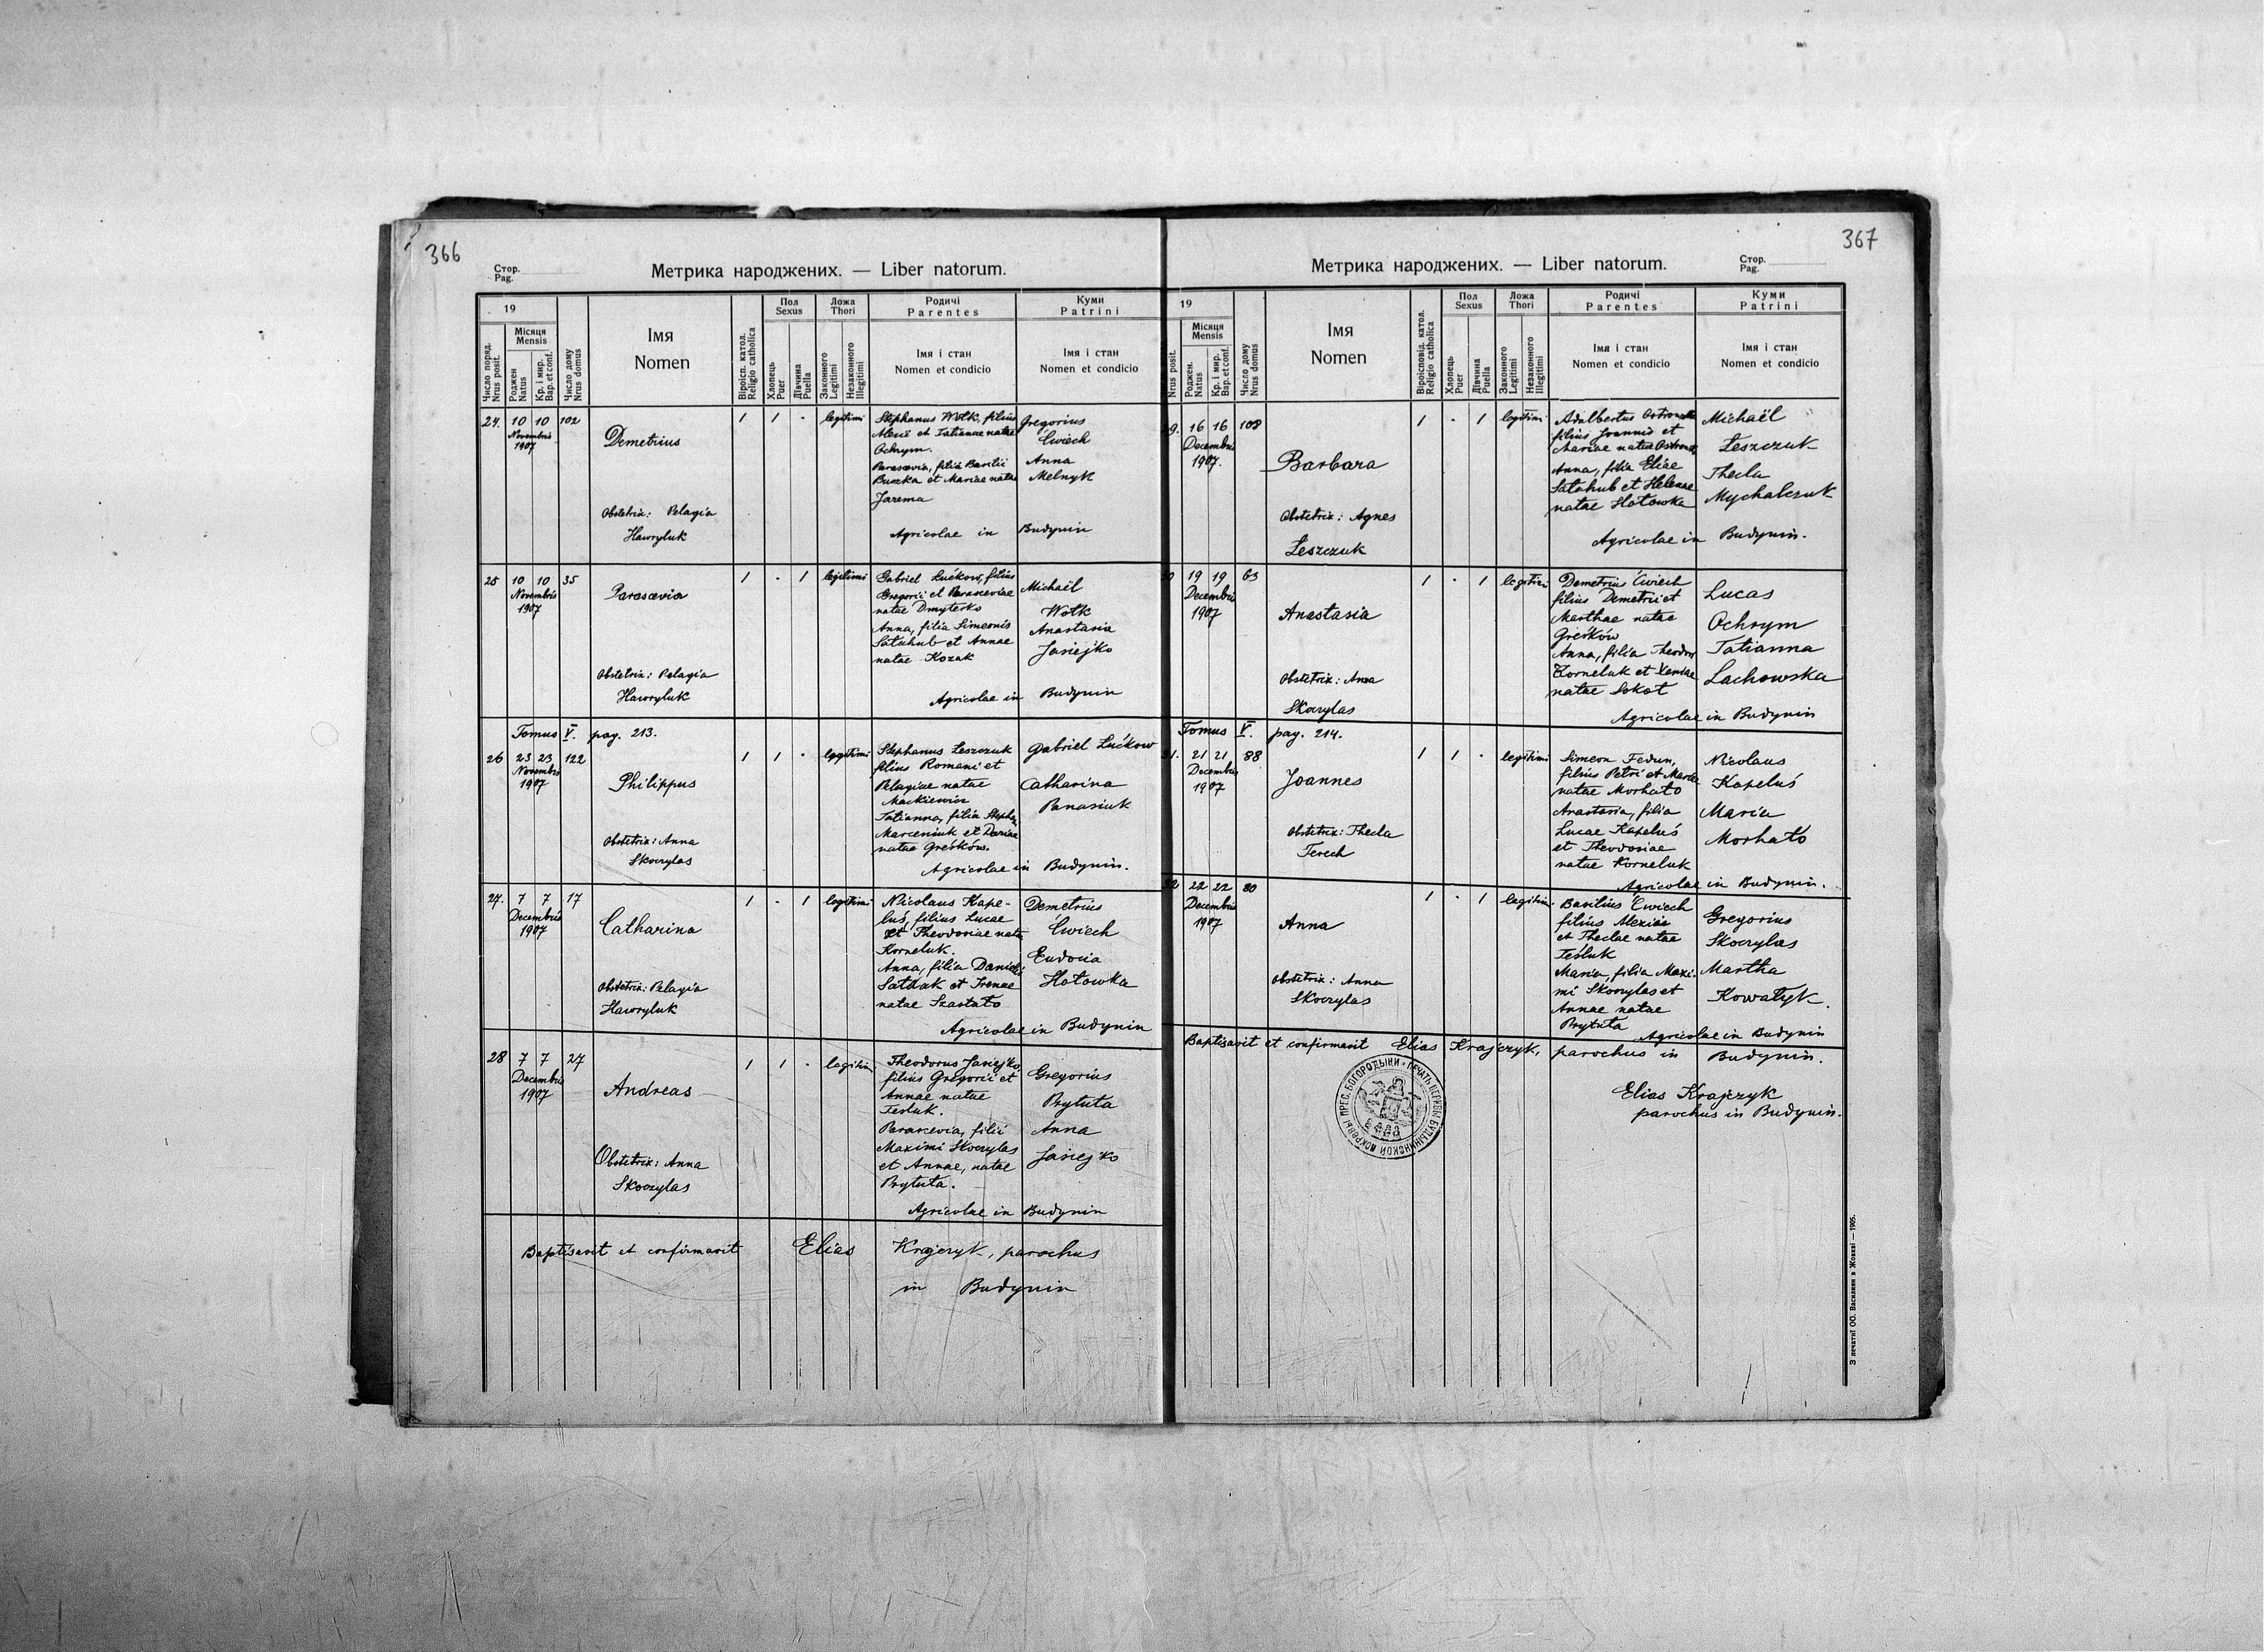 366
Стор.
Pag.
Метрика народжених. — Liber natorum.
19
Число поряд.
Nrus posit.
Місяця
Mensis
Роджен
Natus
Кр. і мир.
Bap. et conf.
Число дому
Nrus domus
Імя
Nomen
Віроісп. катол.
Religio catholica
Пол
Sexus
Хлопець
Puer
Дівчина
Puella
Ложа
Thori
Законного
Legitimi
Незаконного
Illegitimi
Родичі
Parentes
Імя і стан
Nomen et condicio
Куми
Patrini
Імя і стан
Nomen et condicio
24. 10 10 102
Novembris
1907
Demetrius
Obstetrix: Pelagia
Hawryluk
1 1 - legitimi
Stephanus Wołk, filius
Alexii et Tatianae natae
Ochrym.
Parascevia, filia Basilii
Buczka et Mariae natae
Jarema
Gregorius
Ćwiech
Anna
Melnyk
Agricolae in Budynin
25 10 10 35
Novembris
1907
Parascevia
Obstetrix: Pelagia
Hawryluk
1 - 1 legitimi
Gabriel Łućkow, filius
Gregorii et Parasceviae
natae Dmyterko
Anna, filia Simeonis
Sałahub et Annae
natae Kozak
Michaël
Wołk
Anastasia
Jasiejko
Agricolae in Budynin
Tomus V. pag. 213.
26 23 23 122
Novembris
1907
Philippus
Obstetrix: Anna
Skoczylas
1 1 - legitimi
Stephanus Leszczuk
filius Romani et
Pelagiae natae
Mackiewicz
Tatianna, filia Stephani
Marceniuk et Dariae
natae Greśków.
Gabriel Łućkow
Catharina
Panasiuk
Agricolae in Budynin.
27. 7 7 17
Decembris
1907
Catharina
Obstetrix: Pelagia
Hawryluk
1 - 1 legitimi
Nicolaus Kape-
luś, filius Lucae
et Theodosiae natae
Korneluk.
Anna, filia Danielis
natae Szastało
Demetrius
Ćwiech
Eudocia
Hołowka
Agricolae in Budynin
28 7 7 27
Decembris
1907
Andreas
Obstetrix: Anna
Skoczylas
1 1 - legitimi
Theodorus Jasiejko,
filius Gregorii et
Annae natae
Tesluk.
Parascevia, filia
Maximi Skoczylas
et Annae, natae
Prytuła.
Gregorius
Prytuła
Anna
Jasiejko
Agricolae in Budynin
Baptisavit et confirmavit Elias Krajczyk, parochus
in Budynin
367
Метрика народжених. — Liber natorum.
Стор.
Pag.
19
Nrus posit.
Місяця
Mensis
Роджен.
Natus
Кр. і мир.
Bap. et conf.
Число дому
Nrus domus
Імя
Nomen
Віроісповід. катол.
Religio catholica
Пол
Sexus
Хлопець
Puer
Дівчина
Puella
Ложа
Thori
Законного
Legitimi
Незаконного
Illegitimi
Родичі
Parentes
Імя і стан
Nomen et condicio
Куми
Patrini
Імя і стан
Nomen et condicio
9. 16 16 108
Decembris
1907.
Barbara
Obstetrix: Agnes
Łeszczuk
1 - 1 legitimi
Adalbertus
filius Joannis et
Mariae natae
Anna, filia Eliae
Sałahub et Helenae
natae Hołowka
Michaël
Łeszczuk
Thecla
Mychalczuk
Agricolae in Budynin.
0 19 19 63
Decembris
1907
Anastasia
Obstetrix: Anna
Skoczylas
1 - 1 legitimi
Demetrius Ćwiech
filius Demetrii et
Marthae natae
Greśków
Anna, filia Theodori
Korneluk et Xeniae
natae Sokoł
Lucas
Ochrym
Tatianna
Lachowska
Agricolae in Budynin
Tomus V. pag. 214.
31. 21 21 88
Decembris
1907
Joannes
Obstetrix: Thecla
Terech
1 1 - legitimi
Simeon Fedun,
filius Petri et Mariae
natae Morhało
Anastasia, filia
Lucae Kapeluś
et Theodosiae
natae Korneluk
Nicolaus
Kapeluś
Maria
Morhało
Agricolae in Budynin.
32 22 22 80
Decembris
1907
Anna
Obstetrix: Anna
Skoczylas
1 - 1 legitimi
Basilius Ćwiech
filius Alexiae
et Theclae natae
Teśluk
Maria, filia Maxi-
mi Skoczylas et
Annae natae
Prytuła
Gregorius
Skoczylas
Martha
Kowalyk.
Agricolae in Budynin
Baptisavit et confirmavit Elias Krajczyk, parochus in Budynin.
Elias Krajczyk
parochus in Budynin.
З печатнї ОО. Василиян в Жовкві — 1905.